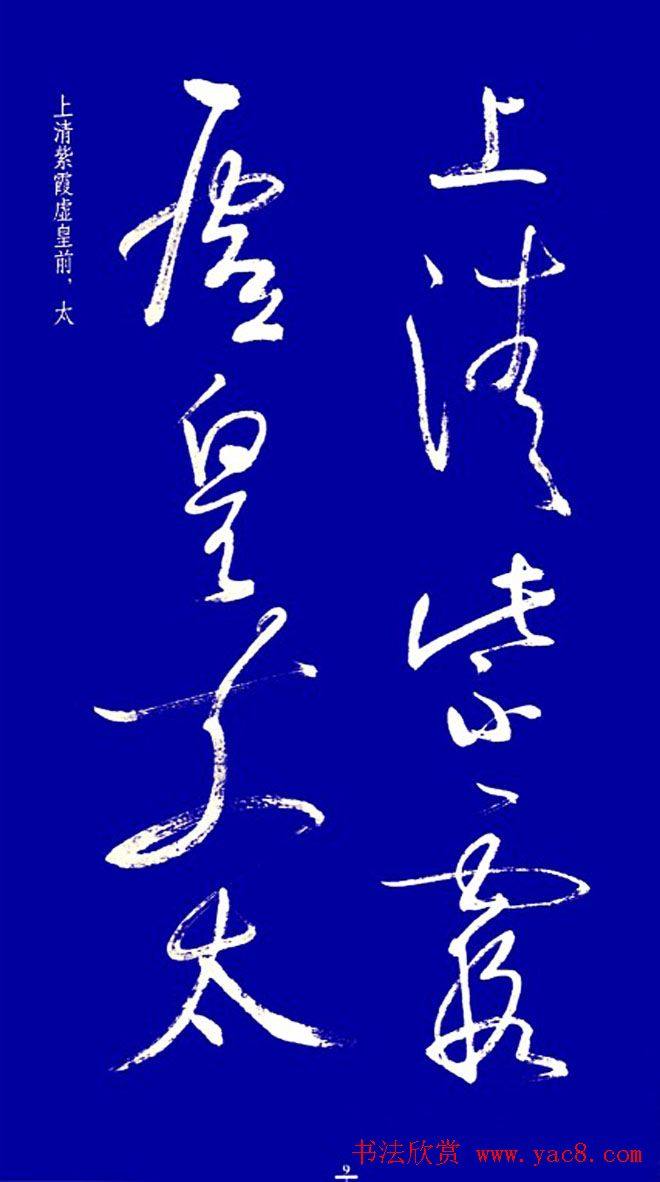 上清紫霞
虚皇前太
上清紫霞虚皇前，太
9
书法欣赏 www.yac8.com